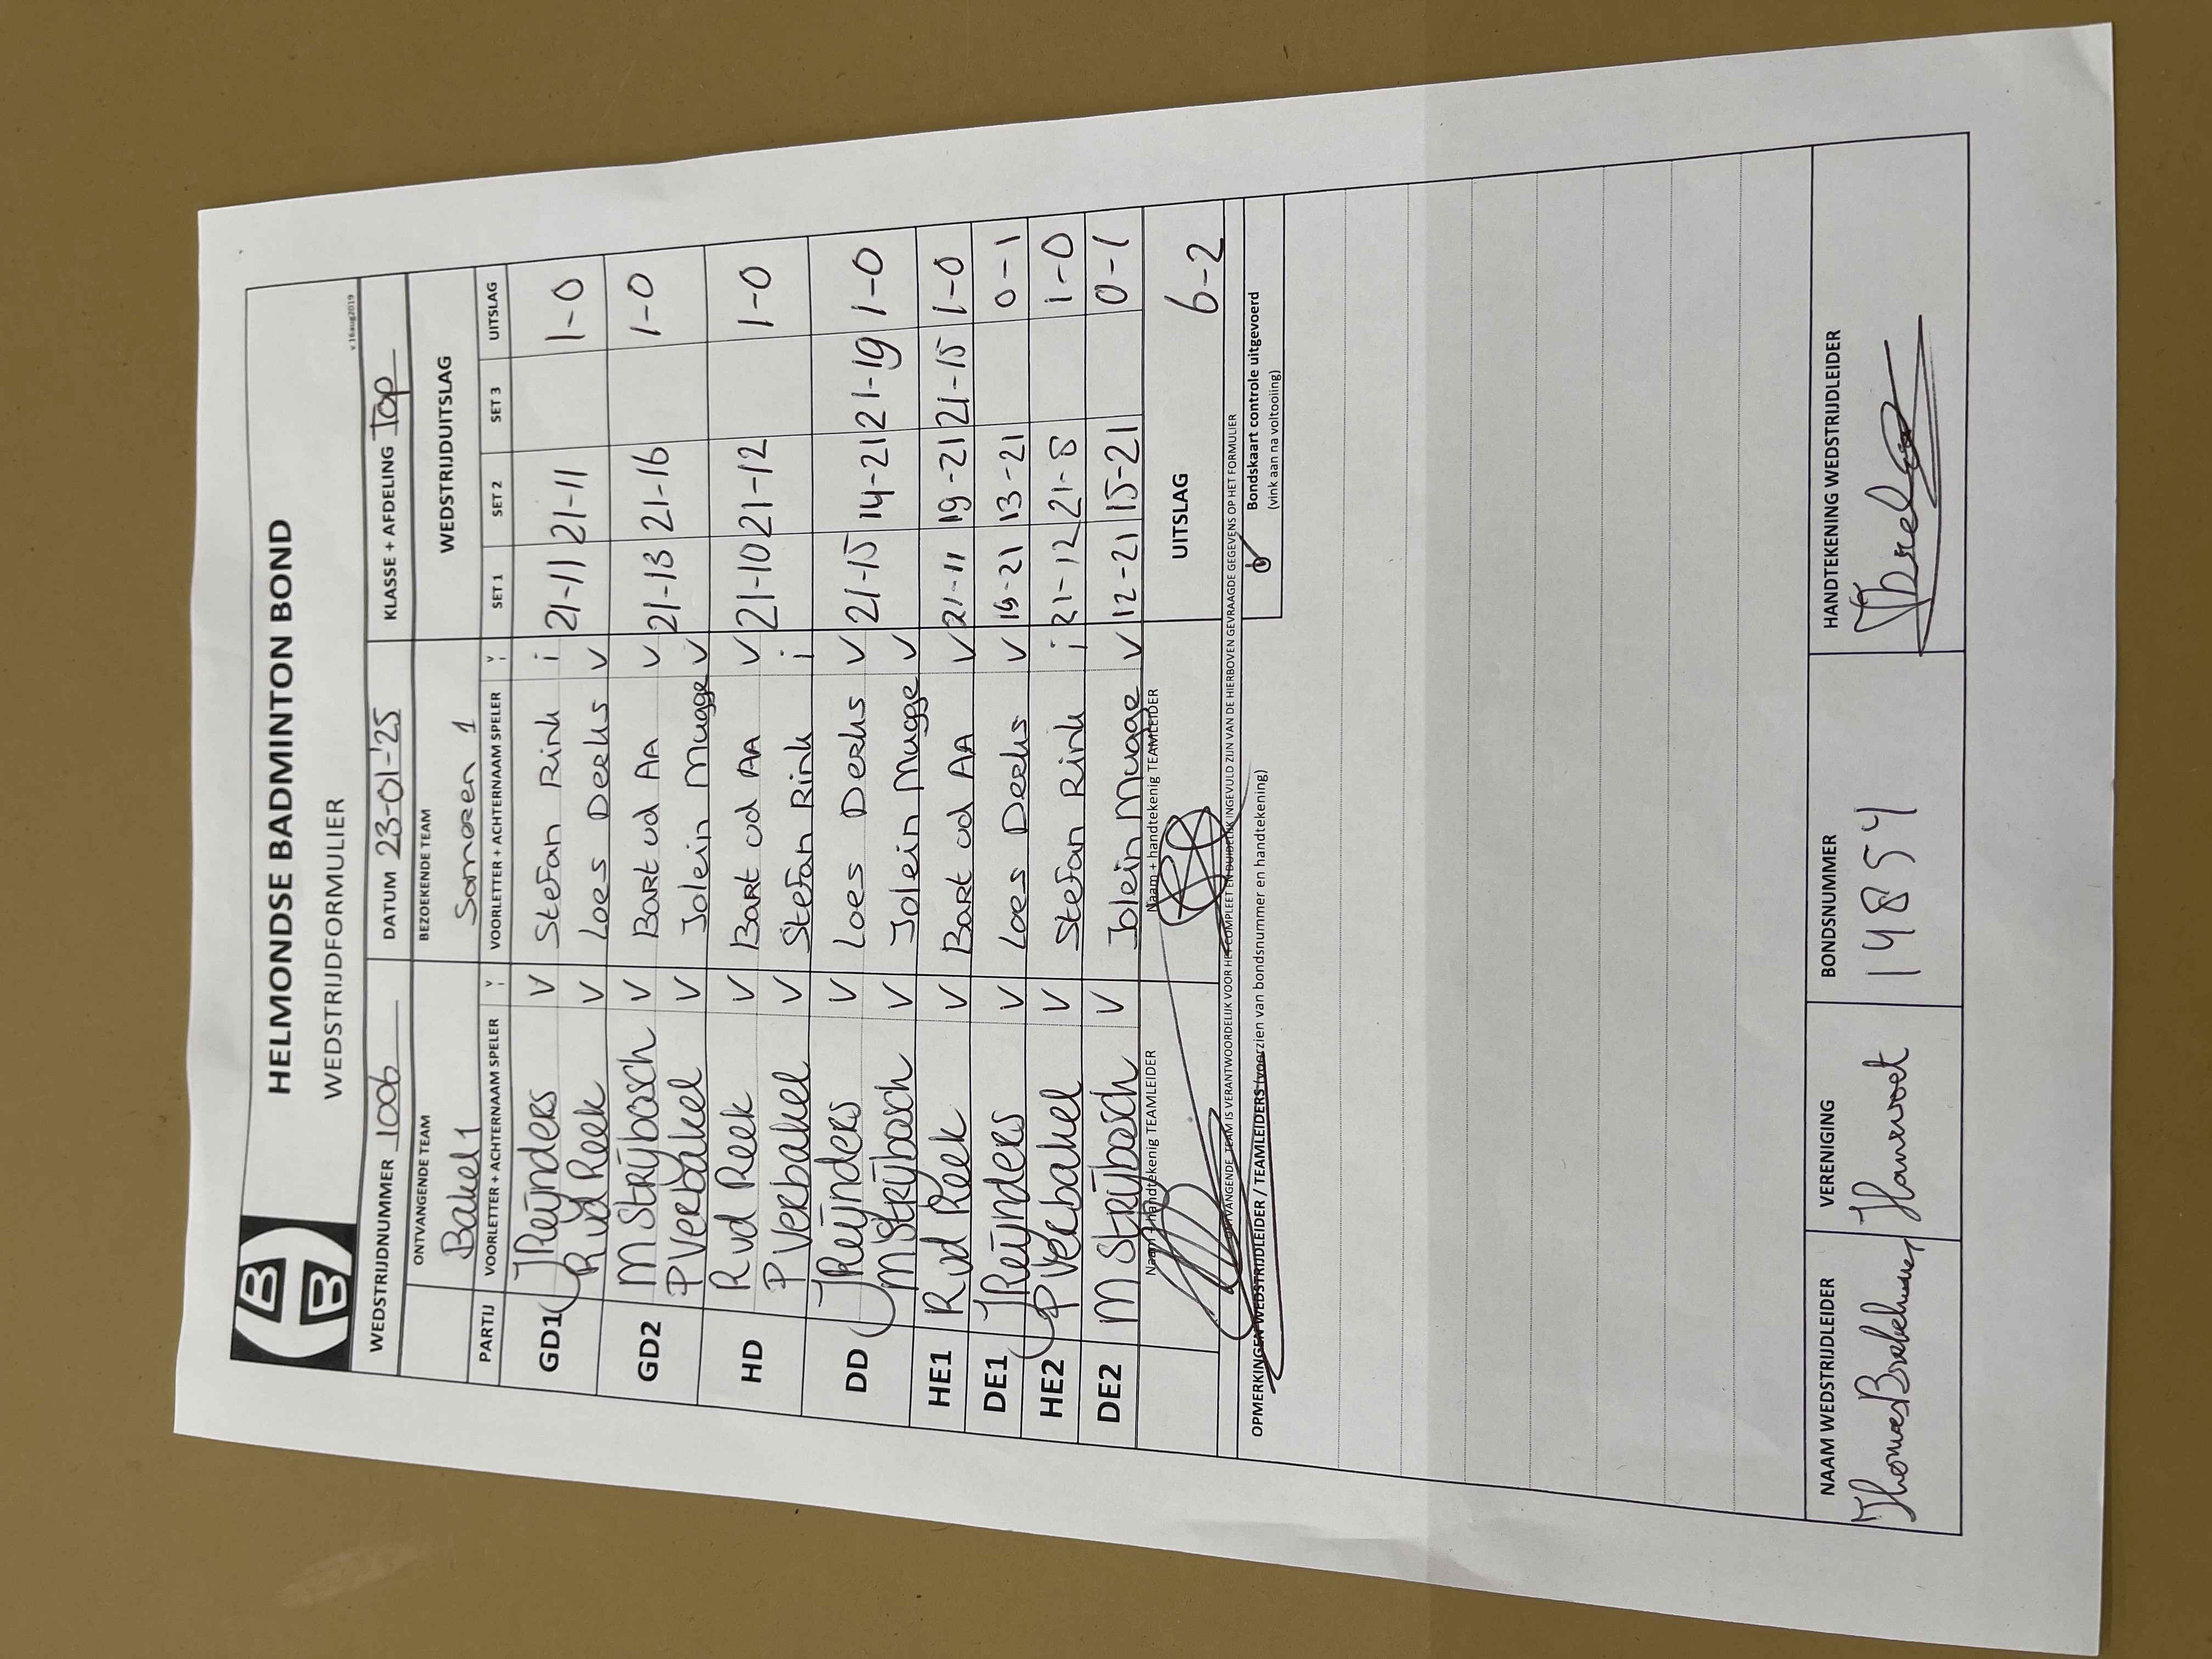 HELMONDSE BADMINTON BOND
WEDSTRIJDFORMULIER
v.16aug2019
WEDSTRIJDNUMMER 1006 DATUM 23-01-'25 KLASSE + AFDELING Top
ONTVANGENDE TEAM BEZOEKENDE TEAM WEDSTRIJDUITSLAG
Bakel 1 Someren 1
PARTIJ VOORLETTER + ACHTERNAAM SPELER V i VOORLETTER + ACHTERNAAM SPELER V i SET 1 SET 2 SET 3 UITSLAG
GD1 J Reijnders V Stefan Rink i 21-11 21-11 1-0
R vd Reek V Loes Derks V
GD2 M Strijbosch V Bart vd Aa V 21-13 21-16 1-0
P Verbakel V Jolein Mugge V
HD R vd Reek V Bart vd Aa V 21-10 21-12 1-0
P Verbakel V Stefan Rink i
DD J Reijnders V Loes Derks V 21-15 14-21 21-19 1-0
M Strijbosch V Jolein Mugge V
HE1 R vd Reek V Bart vd Aa V 21-11 19-21 21-15 1-0
DE1 J Reijnders V Loes Derks V 13-21 0-1
HE2 P Verbakel V Stefan Rink i 21-12 21-8 1-0
DE2 M Strijbosch V Jolein Mugge V 12-21 15-21 0-1
Naam + handtekenig TEAMLEIDER Naam + handtekenig TEAMLEIDER UITSLAG 6-2
ONTVANGENDE TEAM IS VERANTWOORDELIJK VOOR HET COMPLEET EN DUIDELIJK INGEVULD ZIJN VAN DE HIERBOVEN GEVRAAGDE GEGEVENS OP HET FORMULIER
Bondskaart controle uitgevoerd
(vink aan na voltooiing)
OPMERKINGEN WEDSTRIJDLEIDER / TEAMLEIDERS (voorzien van bondsnummer en handtekening)
NAAM WEDSTRIJDLEIDER VERENIGING BONDSNUMMER HANDTEKENING WEDSTRIJDLEIDER
Thomas 14854